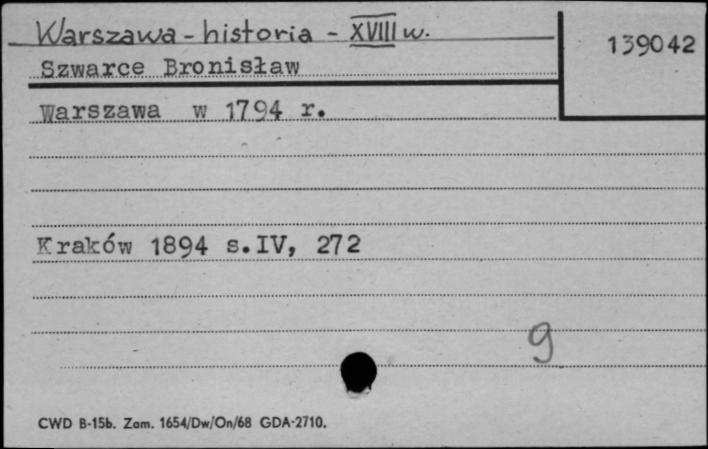 Warszawa - historia - XVIII w.
139042
Szwarce Bronisław
Warszawa w 1794 r.
Kraków 1894 s.IV, 272
9
CWD B-15b. Zam. 1654/Dw/On/68 GDA-2710.